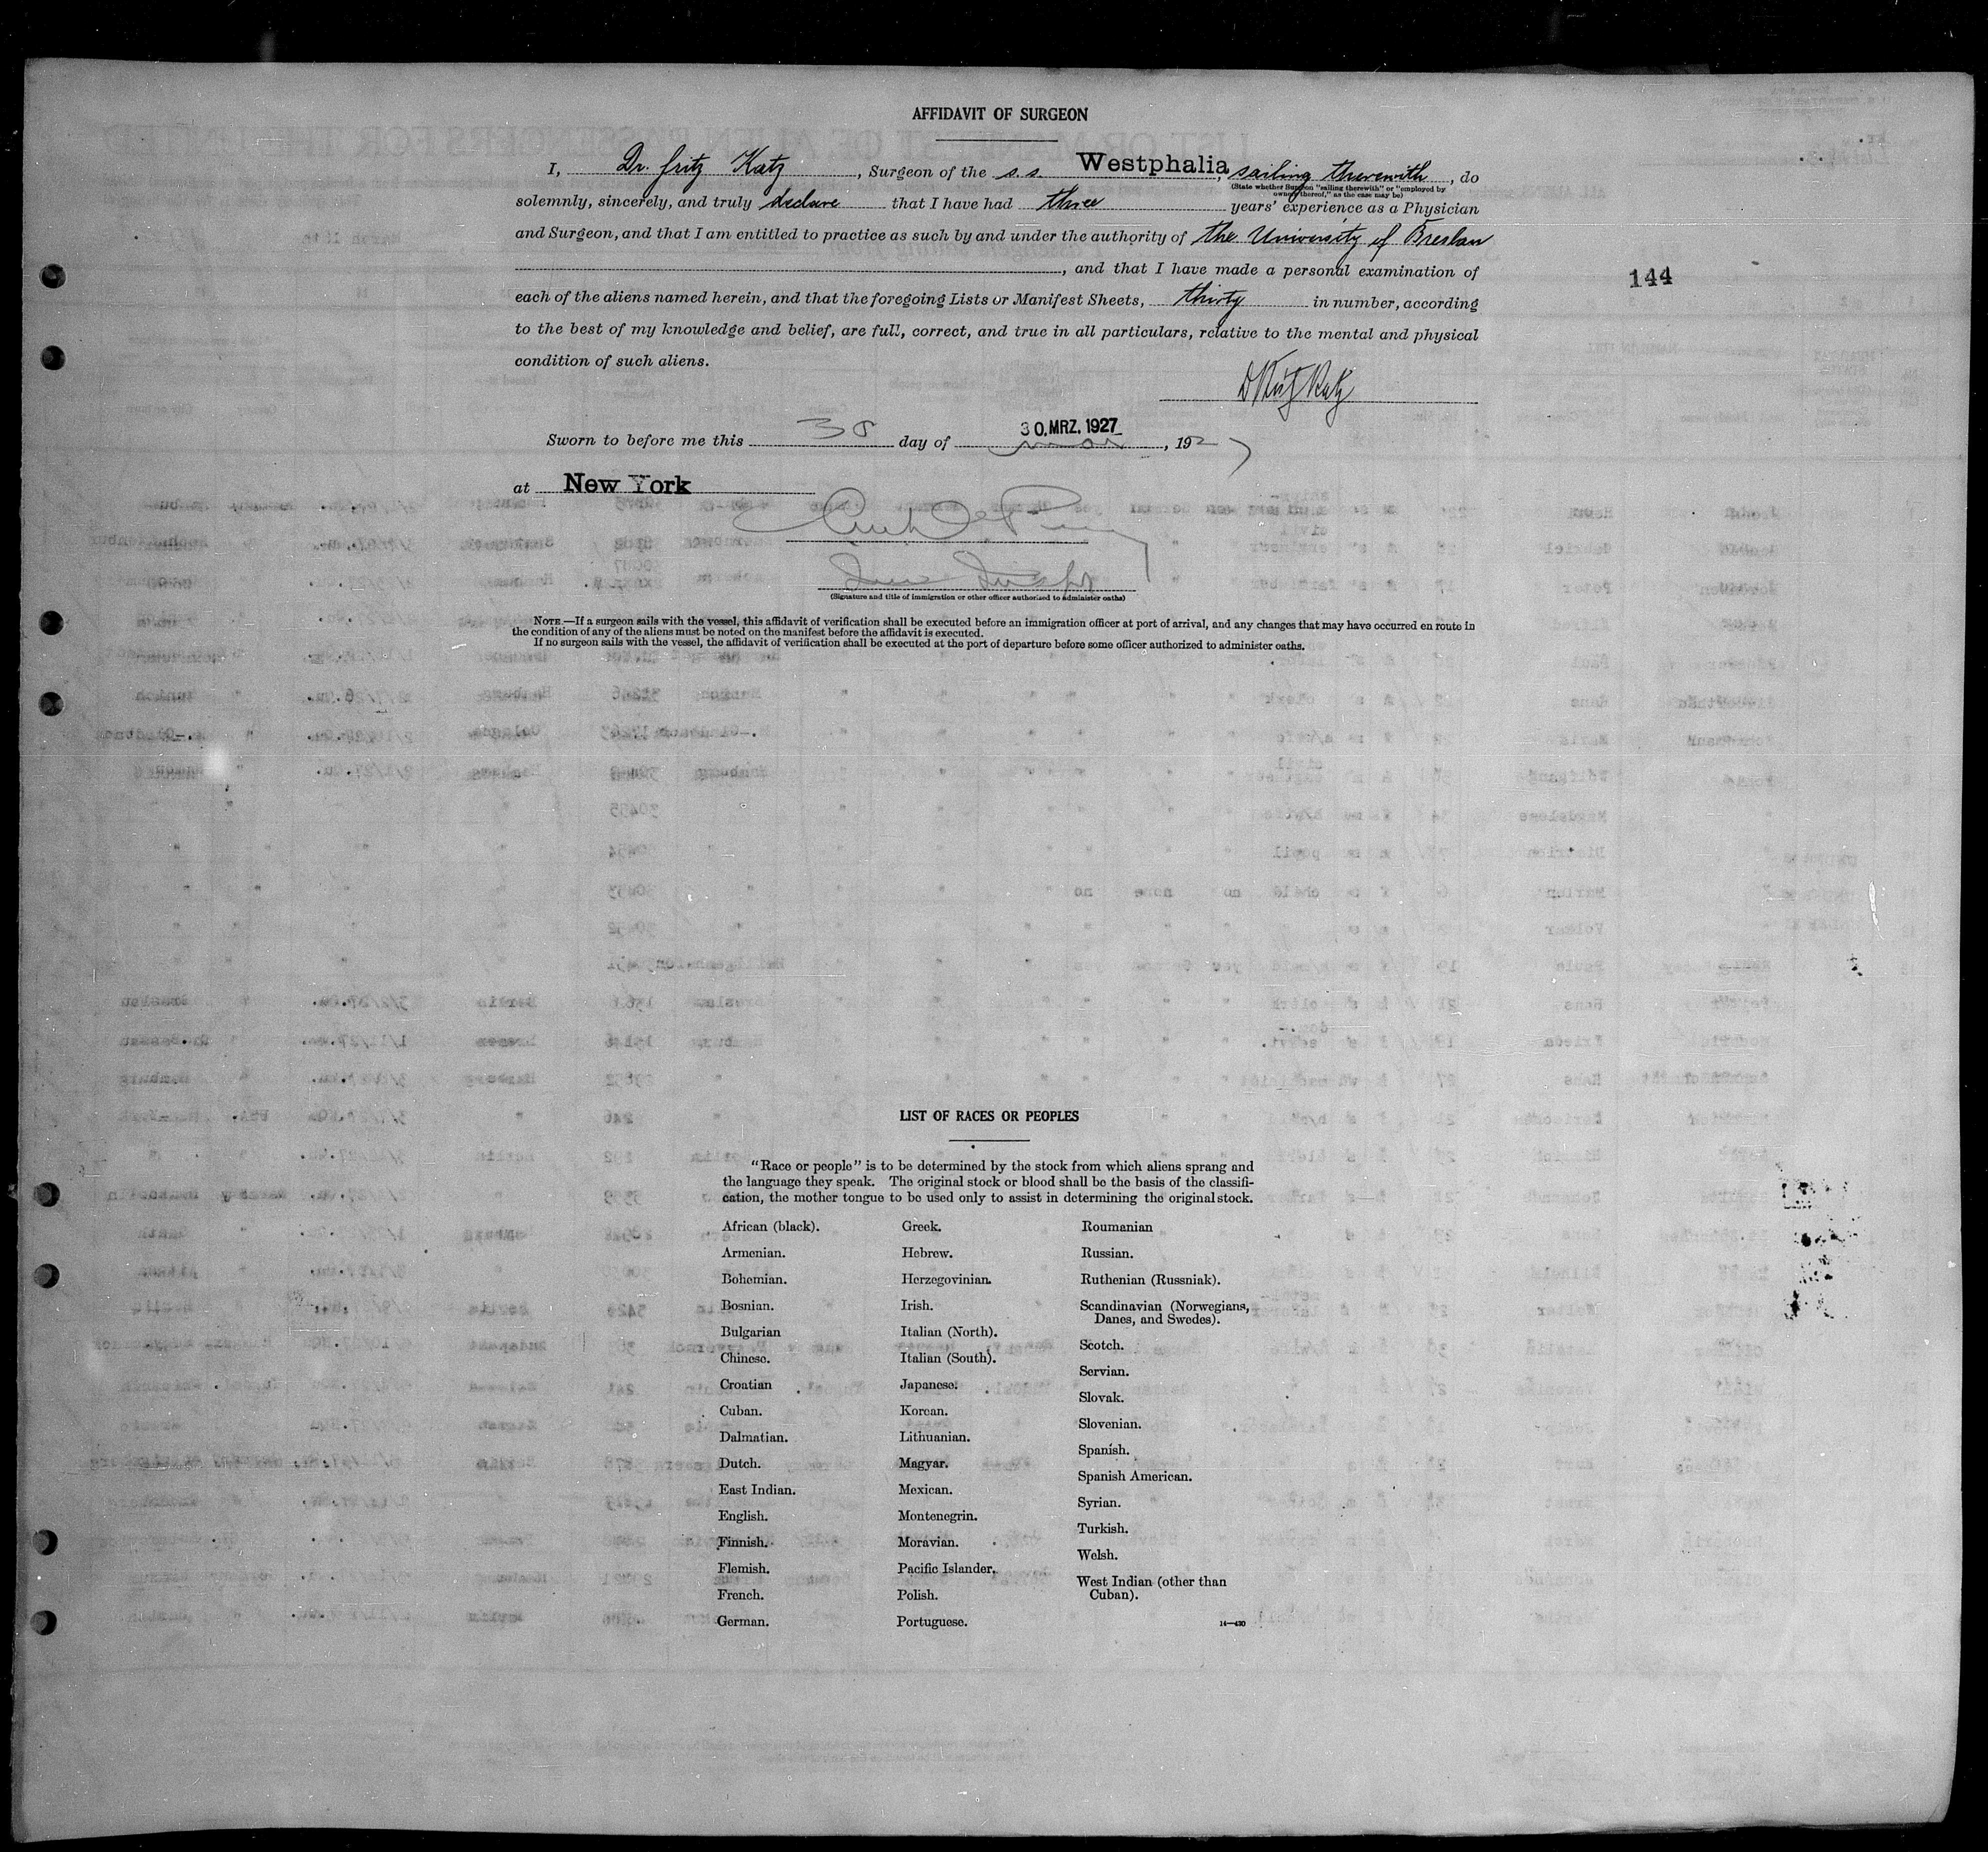 AFFIDAVIT OF SURGEON
I, Dr. Fritz Katz, Surgeon of the s.s. Westphalia, sailing therewith, do
(State whether Surgeon "sailing therewith" or "employed by
owners thereof," as the case may be)
solemnly, sincerely, and truly declare that I have had three years' experience as a Physician
and Surgeon, and that I am entitled to practice as such by and under the authority of the University of Breslau
, and that I have made a personal examination of
144
each of the aliens named herein, and that the foregoing Lists or Manifest Sheets, thirty in number, according
to the best of my knowledge and belief, are full, correct, and true in all particulars, relative to the mental and physical
condition of such aliens.
Dr Fritz Katz
30. MRZ. 1927
Sworn to before me this 30 day of Mar, 1927
at New York
(Signature and title of immigration or other officer authorized to administer oaths)
NOTE.—If a surgeon sails with the vessel, this affidavit of verification shall be executed before an immigration officer at port of arrival, and any changes that may have occurred en route in
the condition of any of the aliens must be noted on the manifest before the affidavit is executed.
If no surgeon sails with the vessel, the affidavit of verification shall be executed at the port of departure before some officer authorized to administer oaths.
LIST OF RACES OR PEOPLES
"Race or people" is to be determined by the stock from which aliens sprang and
the language they speak. The original stock or blood shall be the basis of the classifi-
cation, the mother tongue to be used only to assist in determining the original stock.
African (black).
Armenian.
Bohemian.
Bosnian.
Bulgarian
Chinese.
Croatian
Cuban.
Dalmatian.
Dutch.
East Indian.
English.
Finnish.
Flemish.
French.
German.
Greek.
Hebrew.
Herzegovinian.
Irish.
Italian (North).
Italian (South).
Japanese.
Korean.
Lithuanian.
Magyar.
Mexican.
Montenegrin.
Moravian.
Pacific Islander.
Polish.
Portuguese.
Roumanian
Russian.
Ruthenian (Russniak).
Scandinavian (Norwegians,
Danes, and Swedes).
Scotch.
Servian.
Slovak.
Slovenian.
Spanish.
Spanish American.
Syrian.
Turkish.
Welsh.
West Indian (other than
Cuban).
14—430